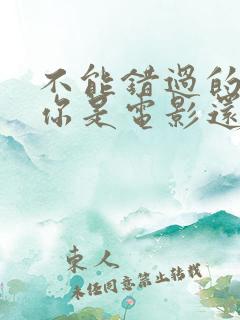 不能錯過的
你是電影還
東人
未经同意禁止转载